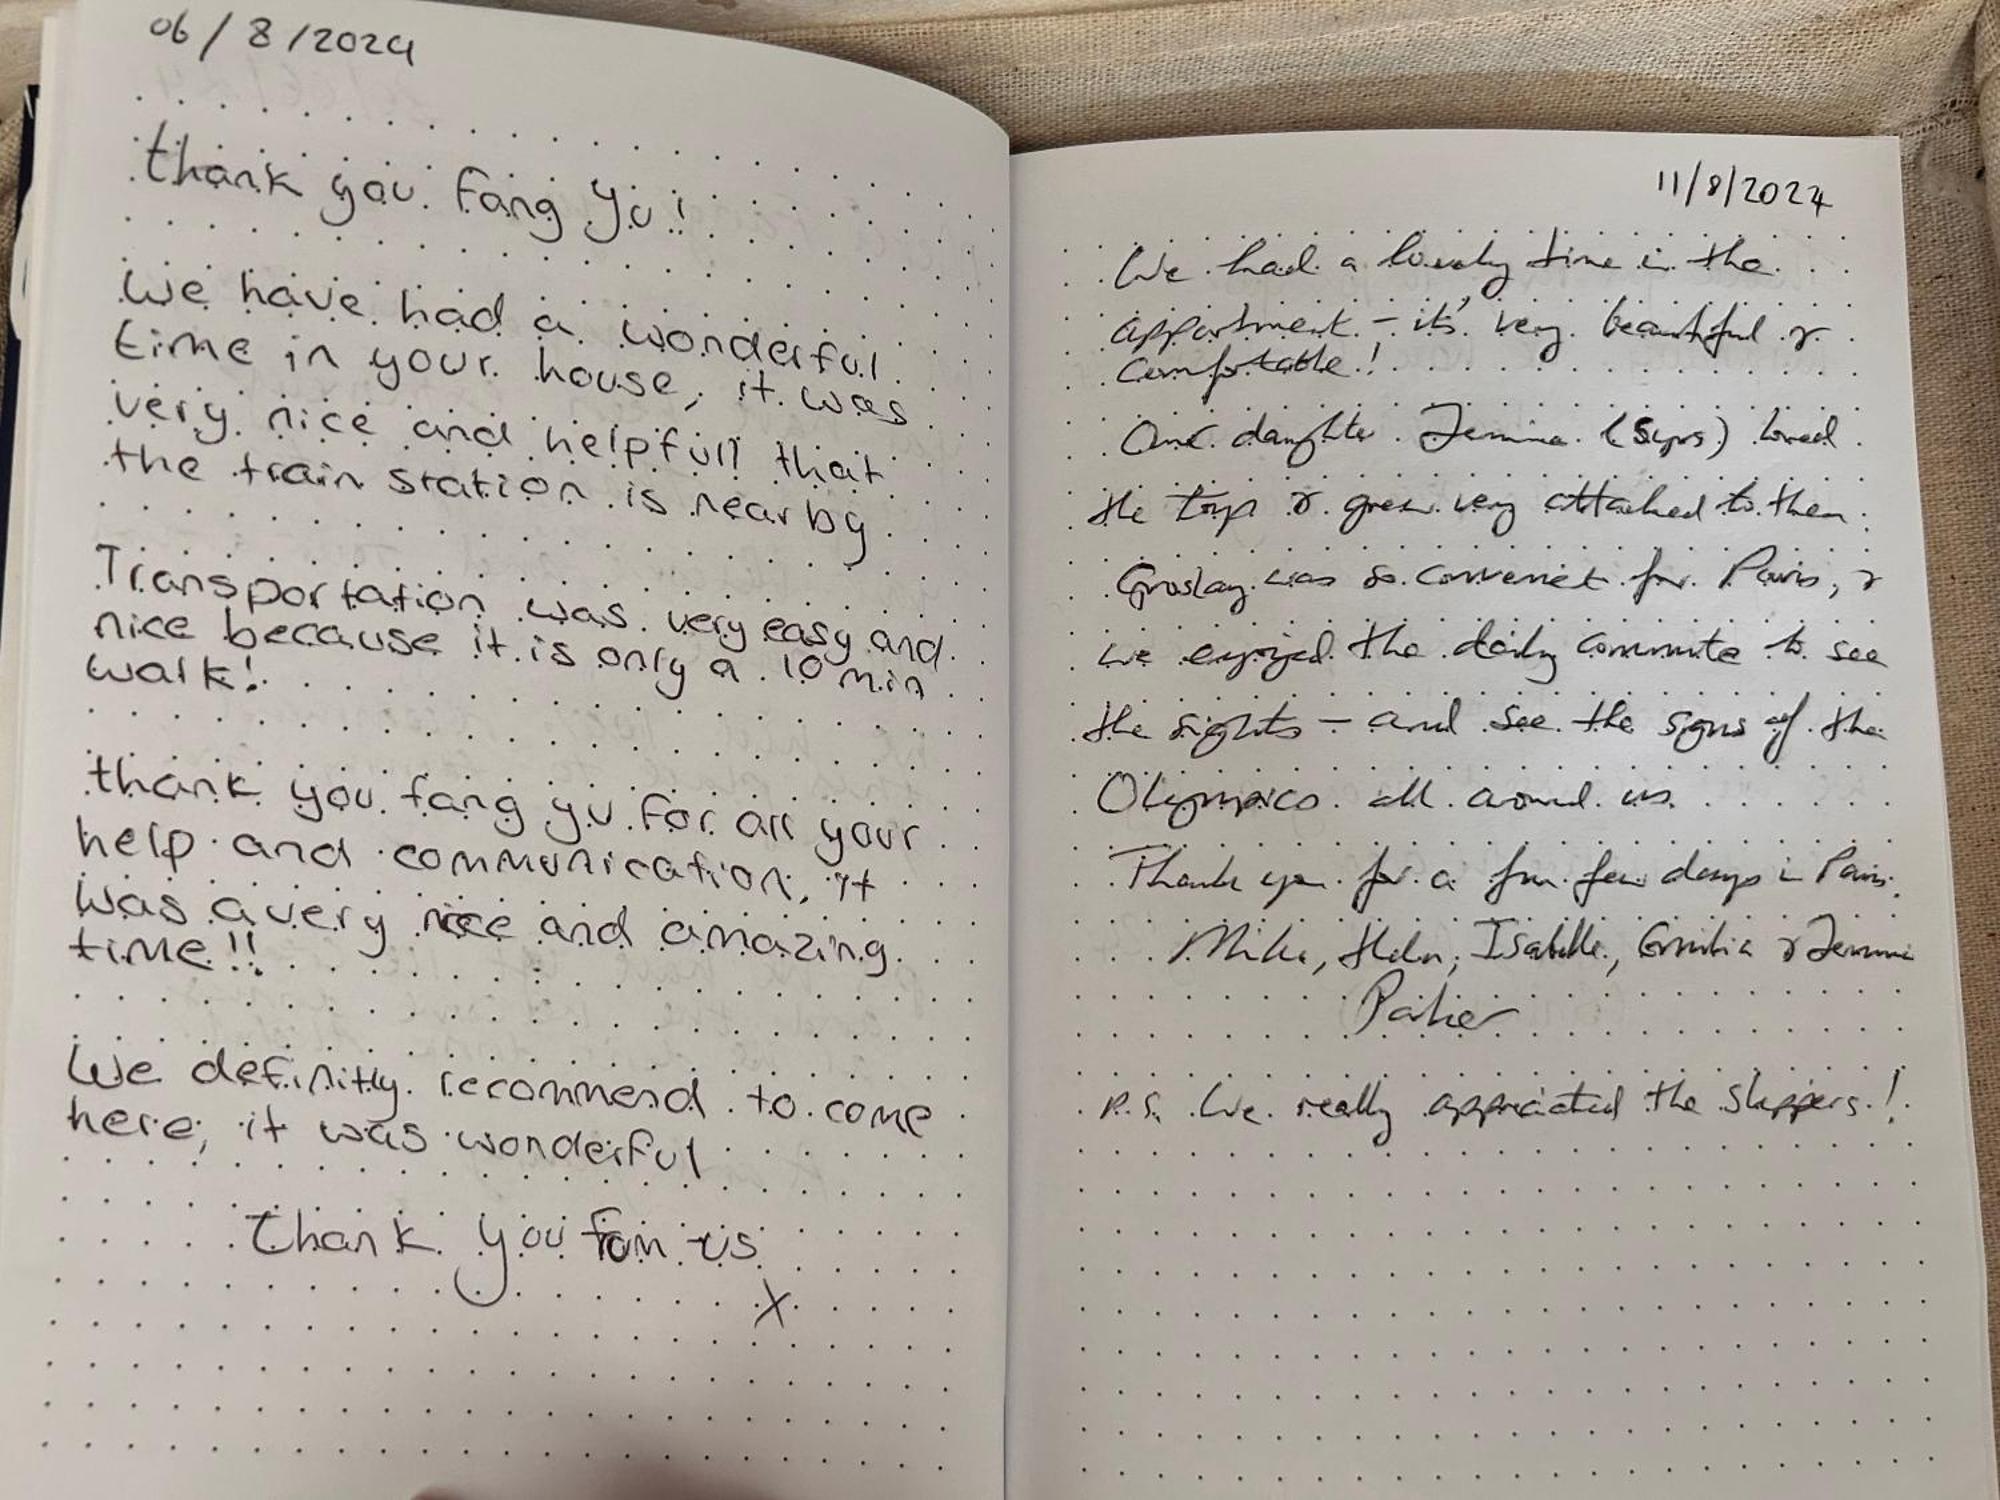 06/8/2024
thank you Fang Yu!
We have had a wonderful
time in your house, it was
very nice and helpfull that
the train station is near by
Transportation was very easy and
nice because it is only a 10 min
walk!
thank you fang yu for all your
help and communication, it
was a very nice and amazing
time!!
We definitly recommend to come
here, it was wonderful
thank you from us
X
11/8/2024
We had a lovely time in the
appartment - it's very beautiful &
comfortable!
Our daughter Jemima (5yrs) loved
the toys & grew very attached to them.
Groslay was so convenient for Paris, &
we enjoyed the daily commute to see
the sights - and see the signs of the
Olympics all around us.
Thank you for a fun few days in Paris.
Mike, Helen, Isabelle, Emilia & Jemima
P.S. We really appreciated the slippers!